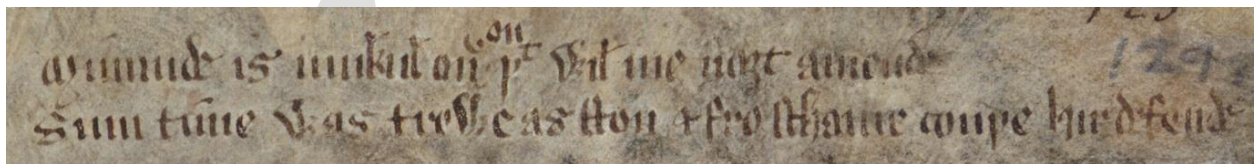 munde is mukul on on þᵗ Wil me noȝt amende
Sum time Was treWe as ston & fro schame couþe hir defende